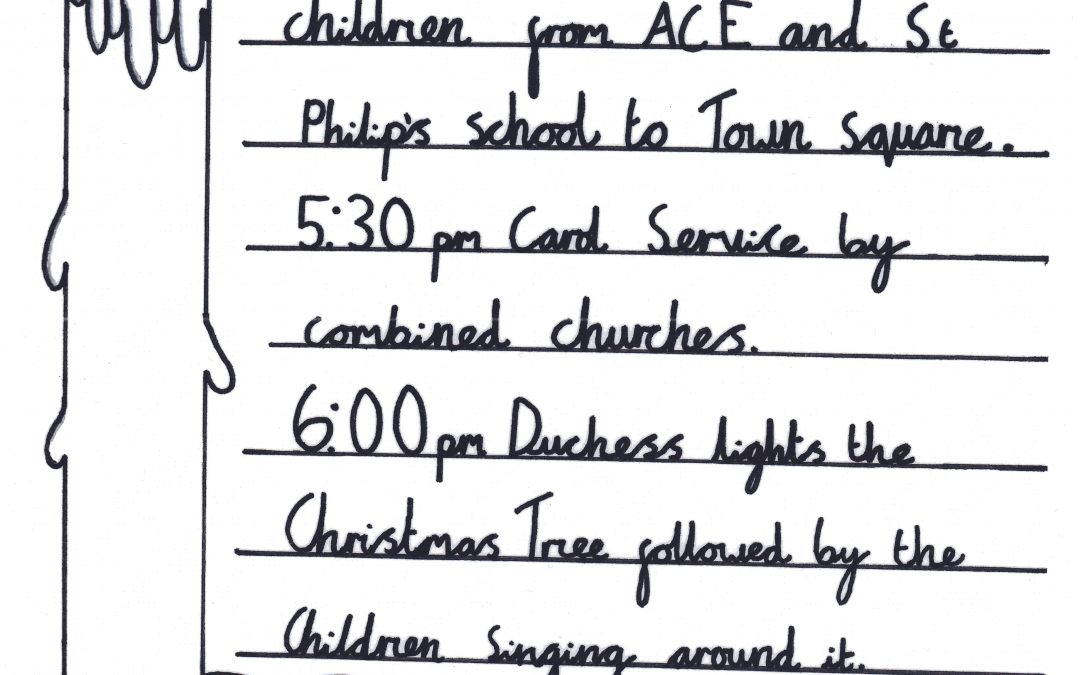 children from ACE and St
Philip's school to Town Square.
5:30 pm Carol Service by
combined churches.
6:00 pm Duchess lights the
Christmas Tree followed by the
Children singing around it.